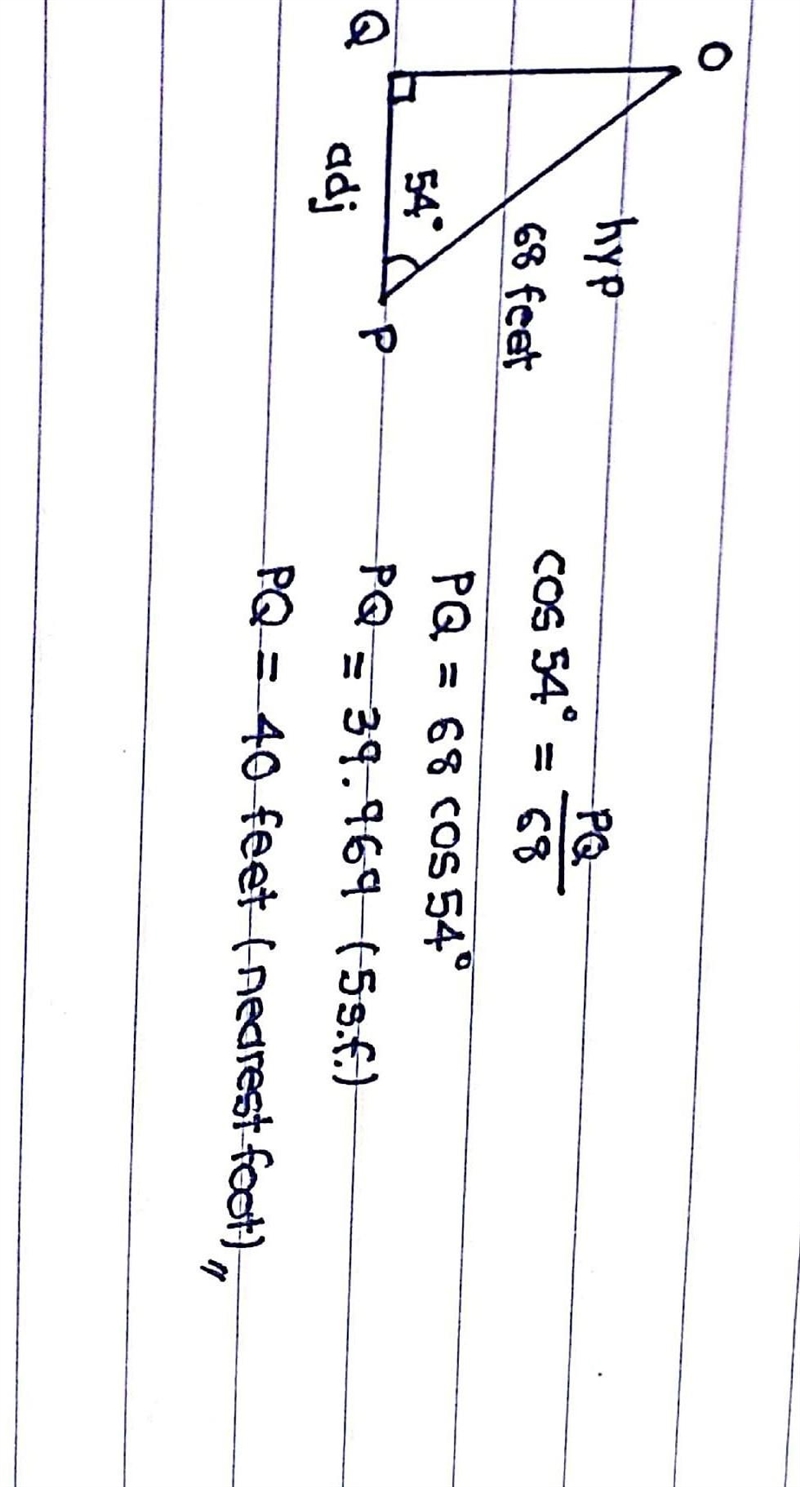 O
hyp
68 feet
54°
Q
adj
P
cos 54° = PQ/68
PQ = 68 cos 54°
PQ = 39.969 (5s.f.)
PQ = 40 feet (nearest foot)〃